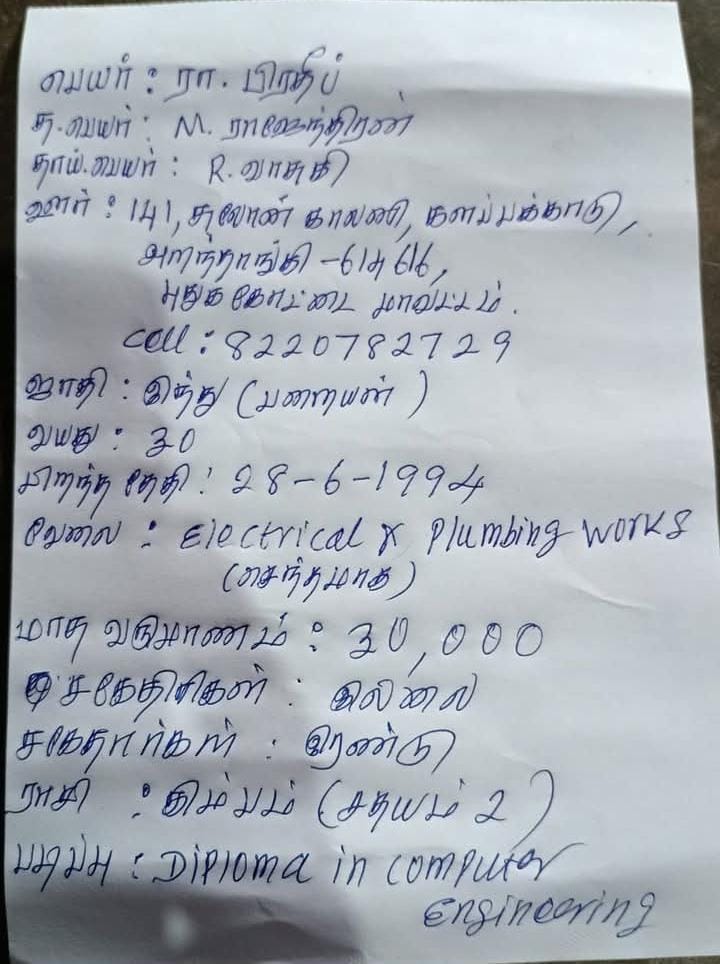 பெயர் : ரா. பிரதீப்
த.பெயர் : M. ராஜேந்திரன்
தாய்.பெயர் : R. வாசுகி
ஊர் : 141, சிலோன் காலணி, களப்பக்காடு,
அறந்தாங்கி - 614 616,
புதுக்கோட்டை மாவட்டம்.
Cell : 8220782729
ஜாதி : இந்து (பறையன்)
வயது : 30
பிறந்த தேதி : 28-6-1994
வேலை : Electrical & Plumbing works
(சொந்தமாக)
மாத வருமானம் : 30,000
சகோதிரிகள் : இல்லை
சகோதரர்கள் : இரண்டு
ராசி : கும்பம் (சதயம் 2)
படிப்பு : Diploma in computer
Engineering